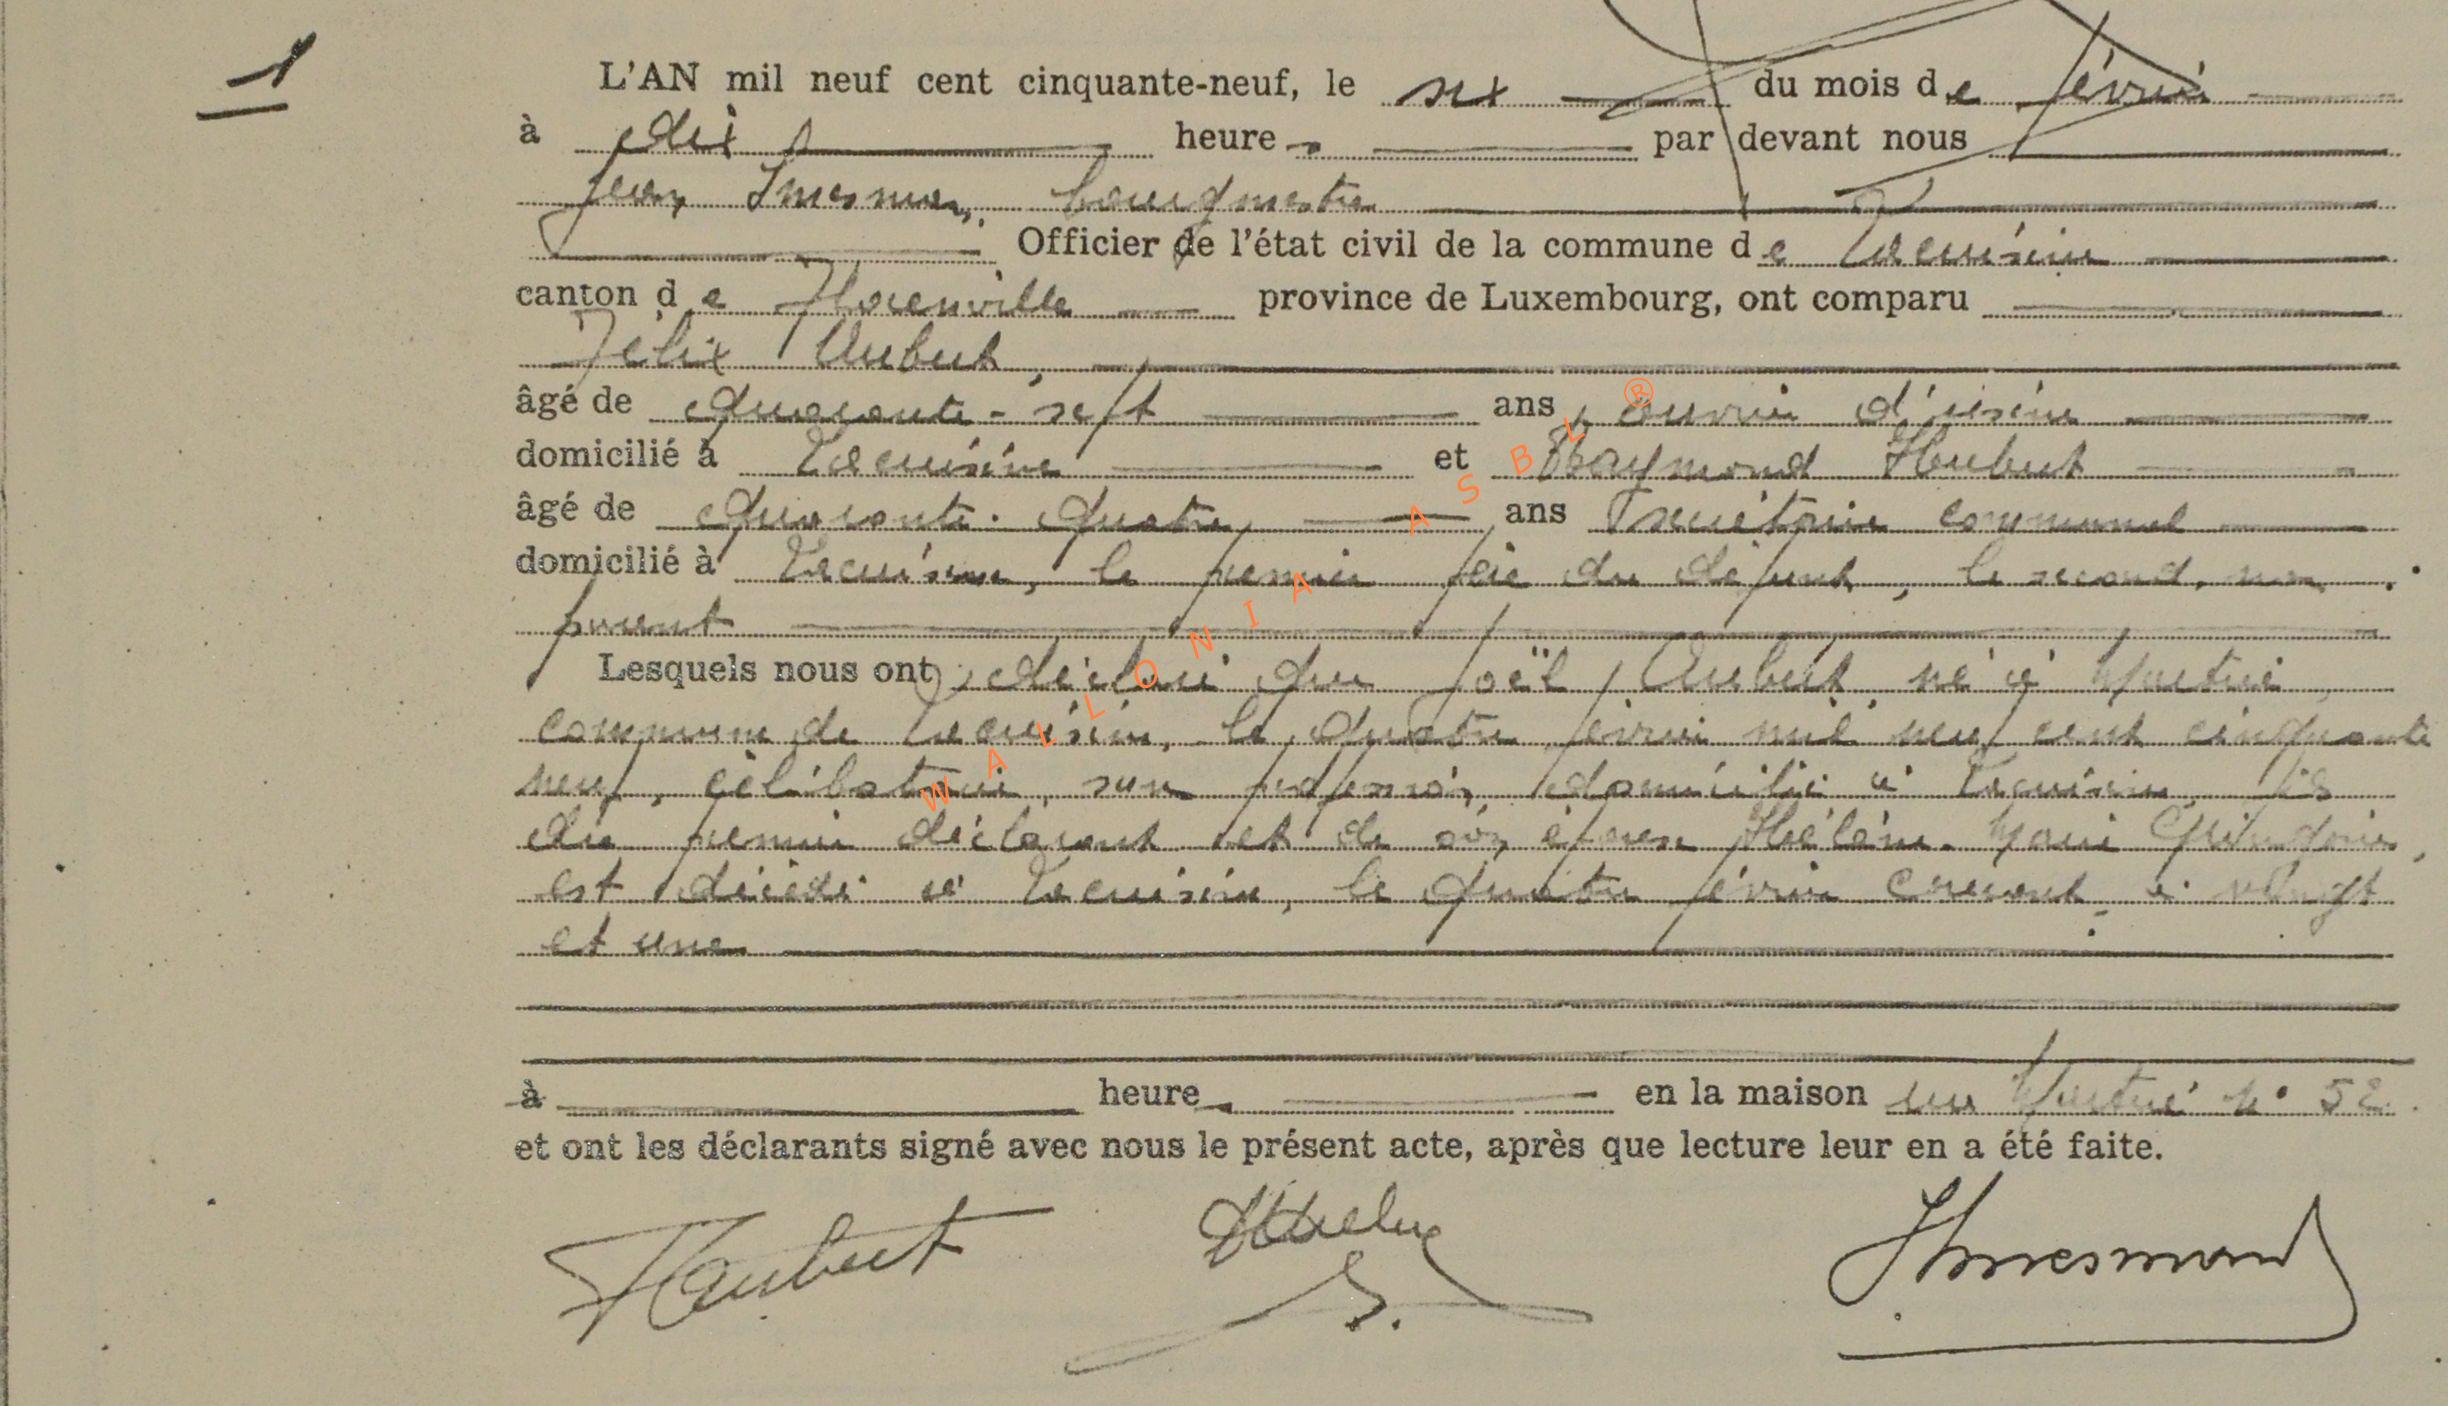 1
L'AN mil neuf cent cinquante-neuf, le six du mois de février
à dix heures par devant nous
Jean bourgmestre
Officier de l'état civil de la commune de Lacuisine
canton de Florenville province de Luxembourg, ont comparu
Félix Aubert,
âgé de quarante-sept ans, ouvrier d'usine
domicilié à Lacuisine et Raymond Hubert
âgé de quarante-quatre ans secrétaire communal
domicilié à Lacuisine, le premier père du défunt, le second, non
parent
Lesquels nous ont déclaré que Joël Aubert né à Martué
commune de Lacuisine, le quatre février mil neuf cent cinquante
neuf, célibataire, sans profession, domicilié à Lacuisine, fils
du premier déclarant et de son épouse Hélène Marie
est décédé à Lacuisine, le quatre février courant, à vingt
et une
à heures en la maison sise Martué N° 52.
et ont les déclarants signé avec nous le présent acte, après que lecture leur en a été faite.
FAubert
WALLONIA ASBL ®